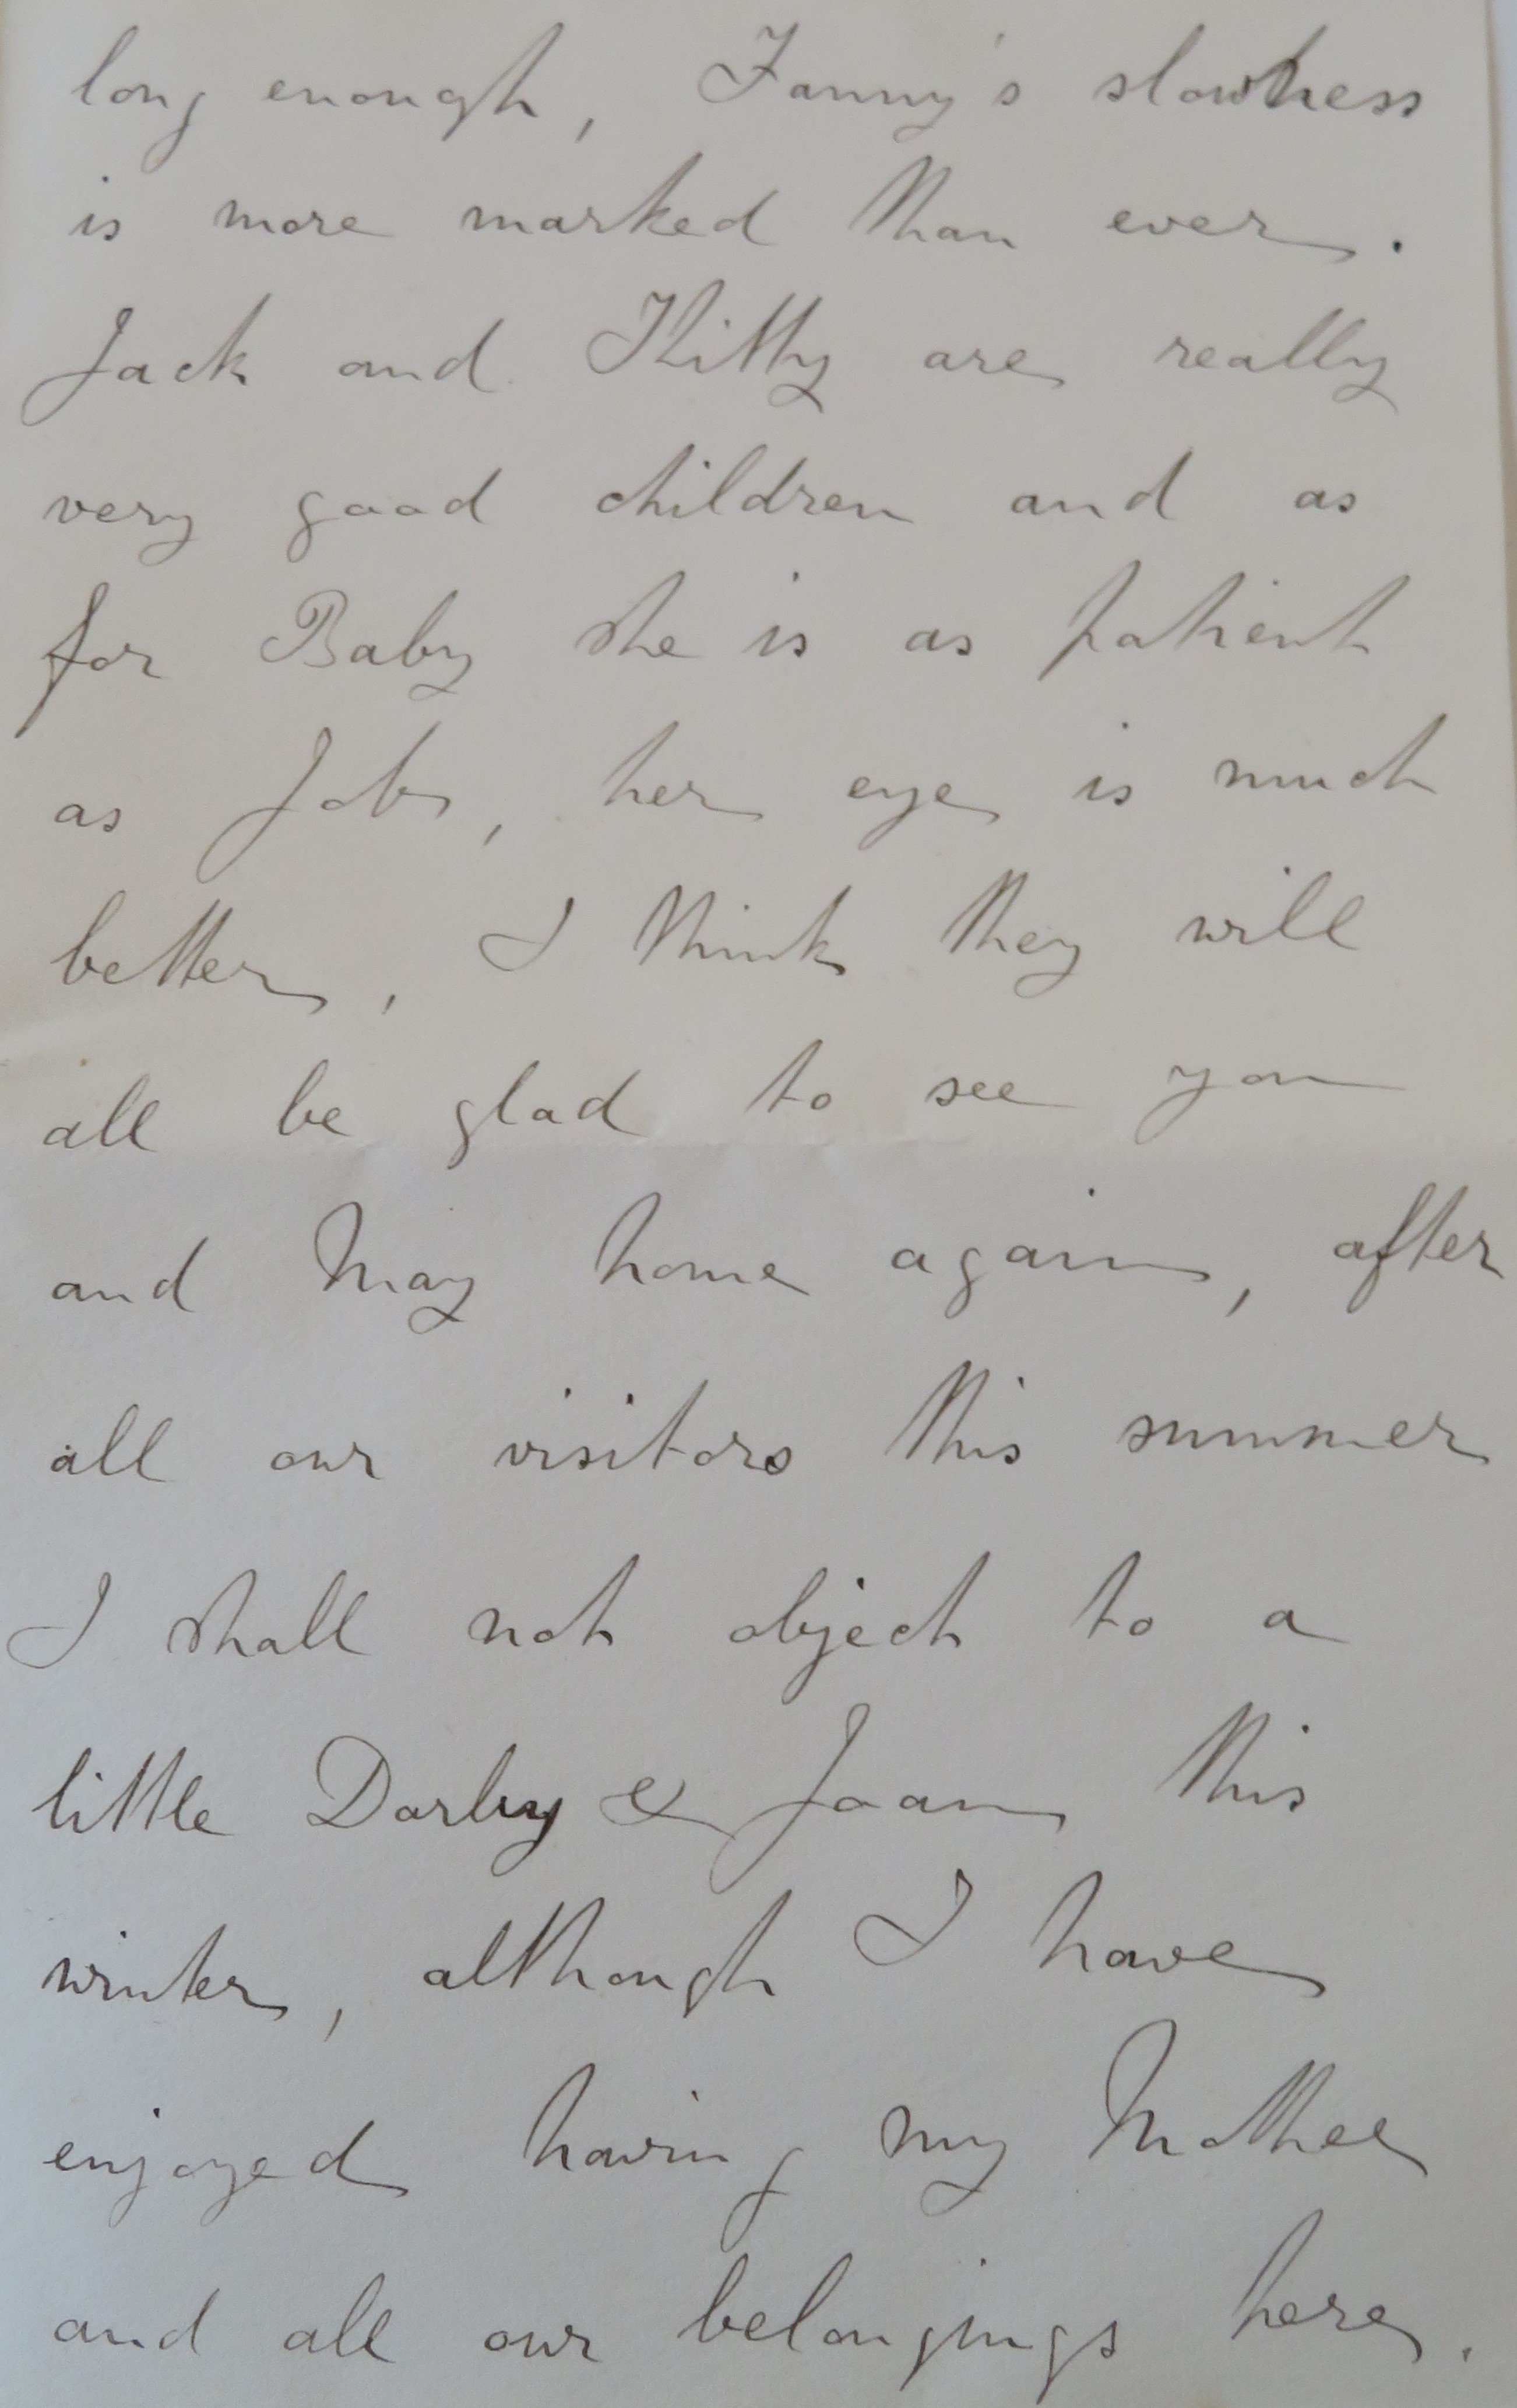 long enough, Fanny's slowness
is more marked than ever.
Jack and Kitty are really
very good children and as
for Baby she is as patient
as Job, her eye is much
better, I think they will
all be glad to see you
and May home again, after
all our visitors this summer
I shall not object to a
little Darby & Joan this
winter, although I have
enjoyed having my Mother
and all our belongings here.